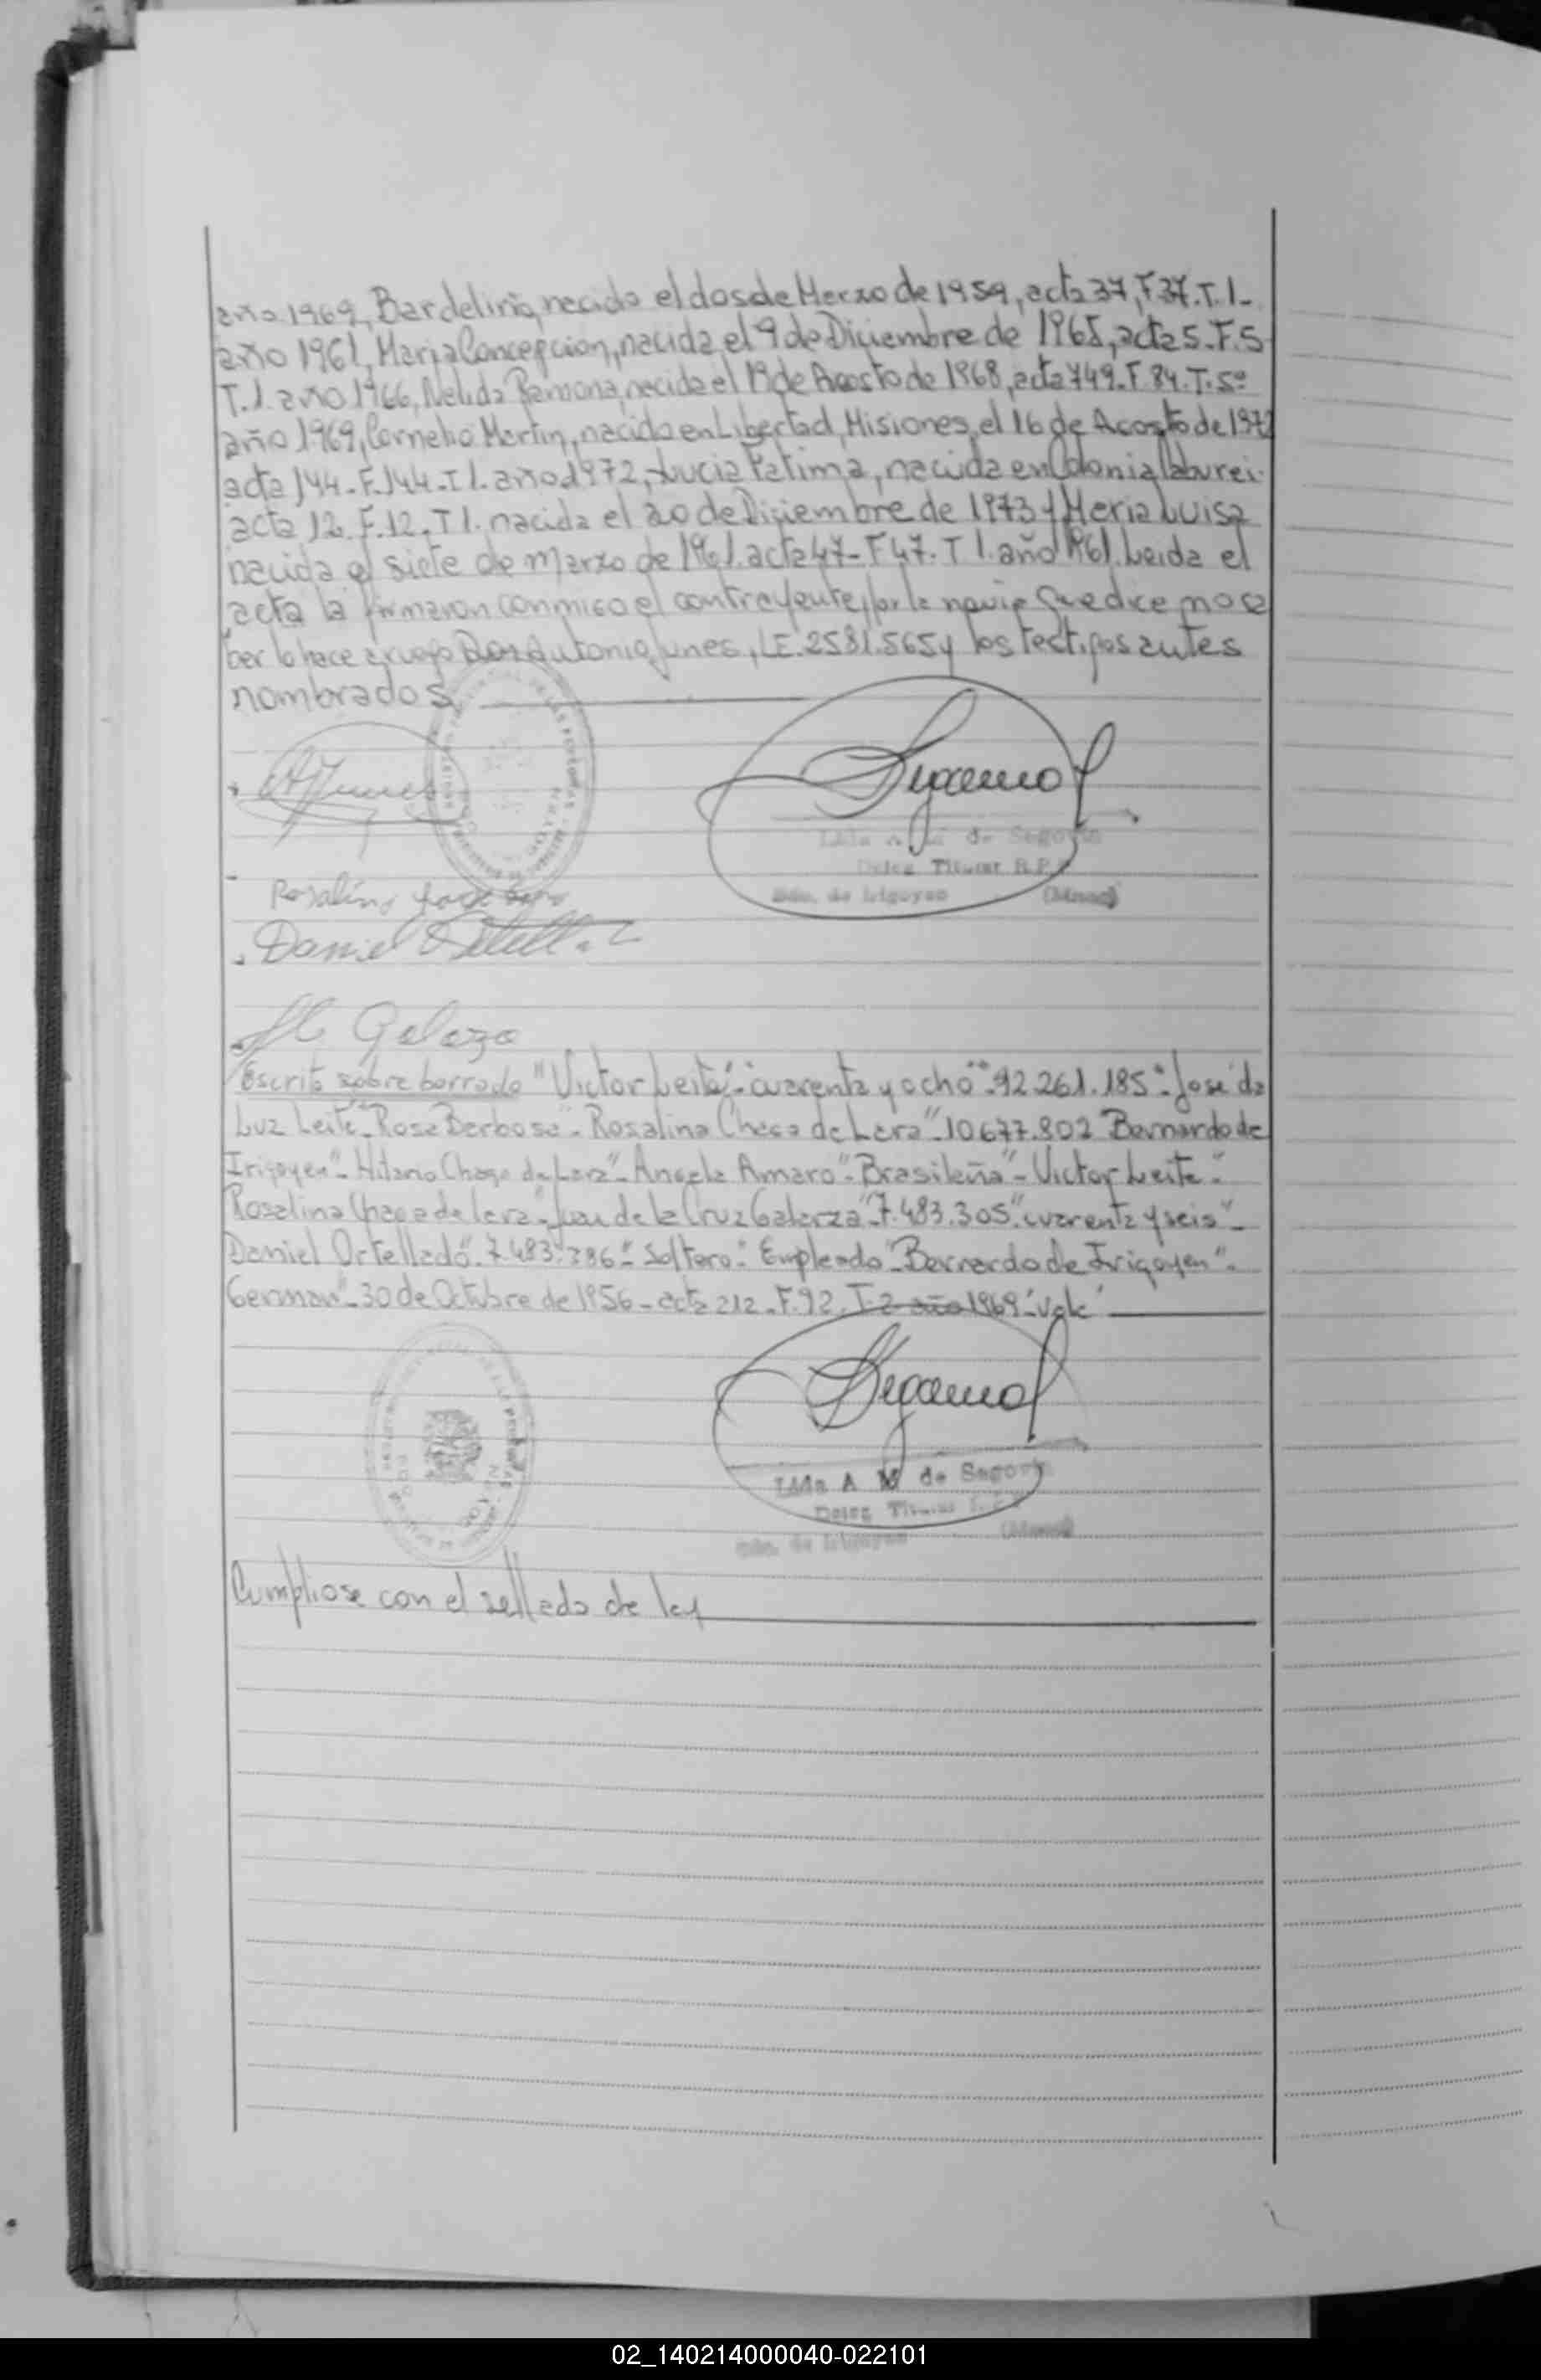 año 1969, Bardelirio, nacido el dos de Marzo de 1959, acta 37, F.37. T.1-
año 1961, Maria Concepcion, nacida el 9 de Diciembre de 1965, acta 5. F.5
T.1. año 1966, Nelida Ramona, nacida el 19 de Agosto de 1968, acta 749. F. 84. T. 5º
año 1969, Cornelio Martin, nacido en Libertad, Misiones, el 16 de Agosto de 1972
acta 144. F.144. T1. año 1972, Lucia Fatima, nacida en Colonia Caburei.
acta 12. F.12. T1. nacida el 20 de Diciembre de 1973 y Maria Luisa
nacida el siete de Marzo de 1961. acta 47- F47. T 1. año 1961. Leida el
acta la firmaron conmigo el contrayente, por la novia que dice no sa
ber lo hace a ruego Don Antonio Junes, LE. 2581.565 y los testigos antes
nombrados
A Junes
Segovia
Lida A M de Segovia
Deleg Titular R.P.
Bdo. de Irigoyen (Mnes)
Rosalino
Daniel
Galarza
Escrito sobre borrado "Victor Leite"-"cuarenta y ocho"-"92.261.185"-"Jose da
Luz Leite"-"Rosa Berbosa"-"Rosalina Chaga de Lara"-"10.677.802" Bernardo de
Irigoyen"-"Hilario Chaga de Lara"-"Angela Amaro"-"Brasileña"-"Victor Leite"-"
Rosalina Chaga de Lara"-"Juan de la Cruz Galarza"-"7.483.305"-"cuarenta y seis"-
Daniel Ortellado"-"7.483.386"-"Soltero"-"Empleado"-"Bernardo de Irigoyen"-
German"-"30 de Octubre de 1956-acta 212-F.92. T.2 año 1969"-vale
Segovia
Lida A M de Segovia
Deleg Titular
Bdo. de Irigoyen (Mnes)
Cumpliose con el sellado de ley
02_140214000040-022101